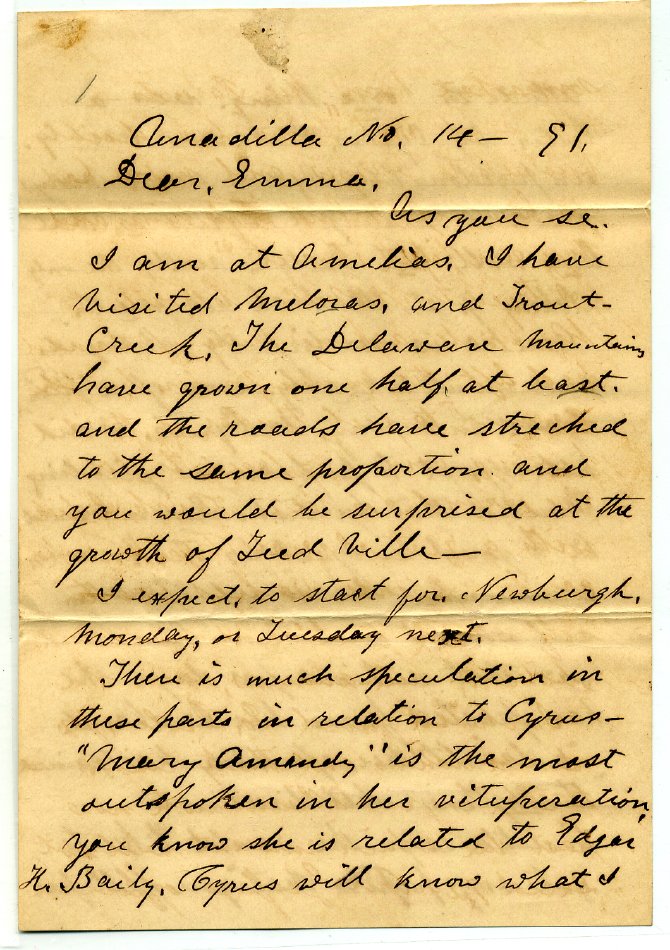 Unadilla No. 14 — 91.
Dear, Emma,
As you se.
I am at Amelias, I have
visited Meloras, and Trout-
Creek, The Delaware Mountains
have grown one half, at least.
and the roads have streched
to the same proportion and
you would be surprised at the
growth of Teed Ville —
I expect, to start for, Newburgh,
Monday, or Tuesday next.
There is much speculation in
these parts in relation to Cyrus —
"Mary Amandy" is the most
outspoken in her vituperation,
you know she is related to Edgar
H. Baily, Cyrus will know what I